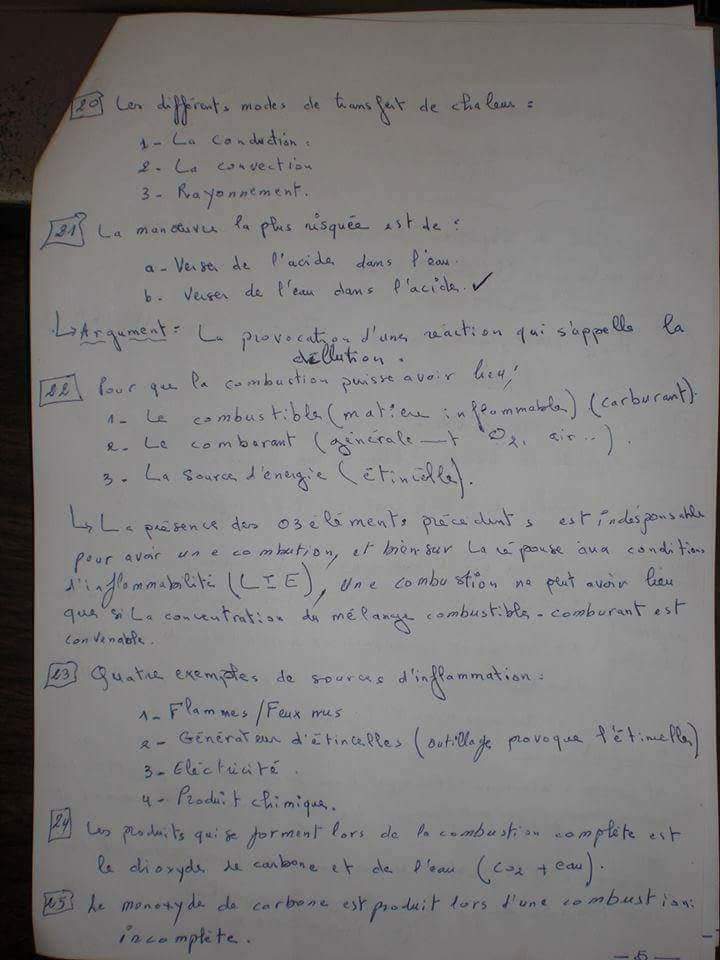 20 Les différents modes de transfert de chaleur :
1- La conduction.
2- La convection
3- Rayonnement.
21 La manœuvre la plus risquée est de :
a- Verser de l'acide dans l'eau.
b. Verser de l'eau dans l'acide. ✓
↳ Argument : La provocation d'une réaction qui s'appelle la
dillution.
22 Pour que la combustion puisse avoir lieu,
1- Le combustible (matière inflammable) (carburant).
2- Le combarant (générale—t O2, air ..).
3- La source d'énergie (étincèlle).
↳ La présence des 03 éléments précédents est indésponsable
pour avoir une combution, et bien sur la réponse aux conditions
d'inflammabilité (LIE), une combustion ne peut avoir lieu
que si La concentration du mélange combustible-comburant est
convenable.
23 Quatre exemples de sources d'inflammation :
1- Flammes/Feux nus
2- Générateur d'étincelles (outillage provoque l'étincelles)
3- Eléctricité.
4- Produit chimique.
24 Les produits qui se forment lors de la combustion complète est
le dioxyde de carbone et de l'eau (CO2 + eau).
25 Le monoxyde de carbone est produit lors d'une combustion:
incomplète.
- 5 -